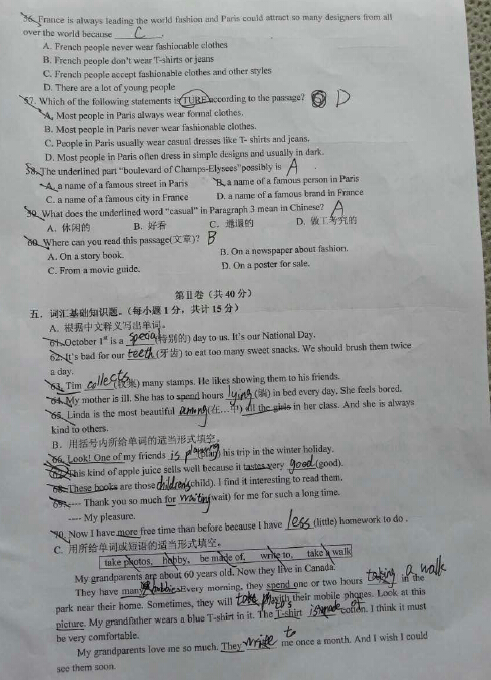 56. France is always leading the world fashion and Paris could attract so many designers from all
over the world because C .
A. French people never wear fashionable clothes
B. French people don't wear T-shirts or jeans
C. French people accept fashionable clothes and other styles
D. There are a lot of young people
57. Which of the following statements is TURE according to the passage? D
A. Most people in Paris always wear formal clothes.
B. Most people in Paris never wear fashionable clothes.
C. People in Paris usually wear casual dresses like T- shirts and jeans.
D. Most people in Paris often dress in simple designs and usually in dark.
58. The underlined part "boulevard of Champs-Elysees" possibly is A
A. a name of a famous street in Paris B. a name of a famous person in Paris
C. a name of a famous city in France D. a name of a famous brand in France
59. What does the underlined word "casual" in Paragraph 3 mean in Chinese? A
A. 休闲的 B. 好看 C. 邋遢的 D. 做工考究的
60. Where can you read this passage(文章)? B
A. On a story book. B. On a newspaper about fashion.
C. From a movie guide. D. On a poster for sale.
第Ⅱ卷（共 40 分）
五．词汇基础知识题。（每小题 1 分，共计 15 分）
A. 根据中文释义写出单词。
61. October 1st is a special (特别的) day to us. It's our National Day.
62. It's bad for our teeth (牙齿) to eat too many sweet snacks. We should brush them twice
a day.
63. Tim collects (收集) many stamps. He likes showing them to his friends.
64. My mother is ill. She has to spend hours lying (躺) in bed every day. She feels bored.
65. Linda is the most beautiful (在…中) all the girls in her class. And she is always
kind to others.
B. 用括号内所给单词的适当形式填空。
66. Look! One of my friends is planning his trip in the winter holiday.
67. This kind of apple juice sells well because it tastes very good (good).
68. These books are those children's (child). I find it interesting to read them.
69. ---- Thank you so much for waiting (wait) for me for such a long time.
---- My pleasure.
70. Now I have more free time than before because I have less (little) homework to do .
C. 用所给单词或短语的适当形式填空。
take photos, hobby, be made of, write to, take a walk
My grandparents are about 60 years old. Now they live in Canada.
They have many hobbies. Every morning, they spend one or two hours taking a walk in the
park near their home. Sometimes, they will take photos with their mobile phones. Look at this
picture. My grandfather wears a blue T-shirt in it. The T-shirt is made of cotton. I think it must
be very comfortable.
My grandparents love me so much. They write to me once a month. And I wish I could
see them soon.